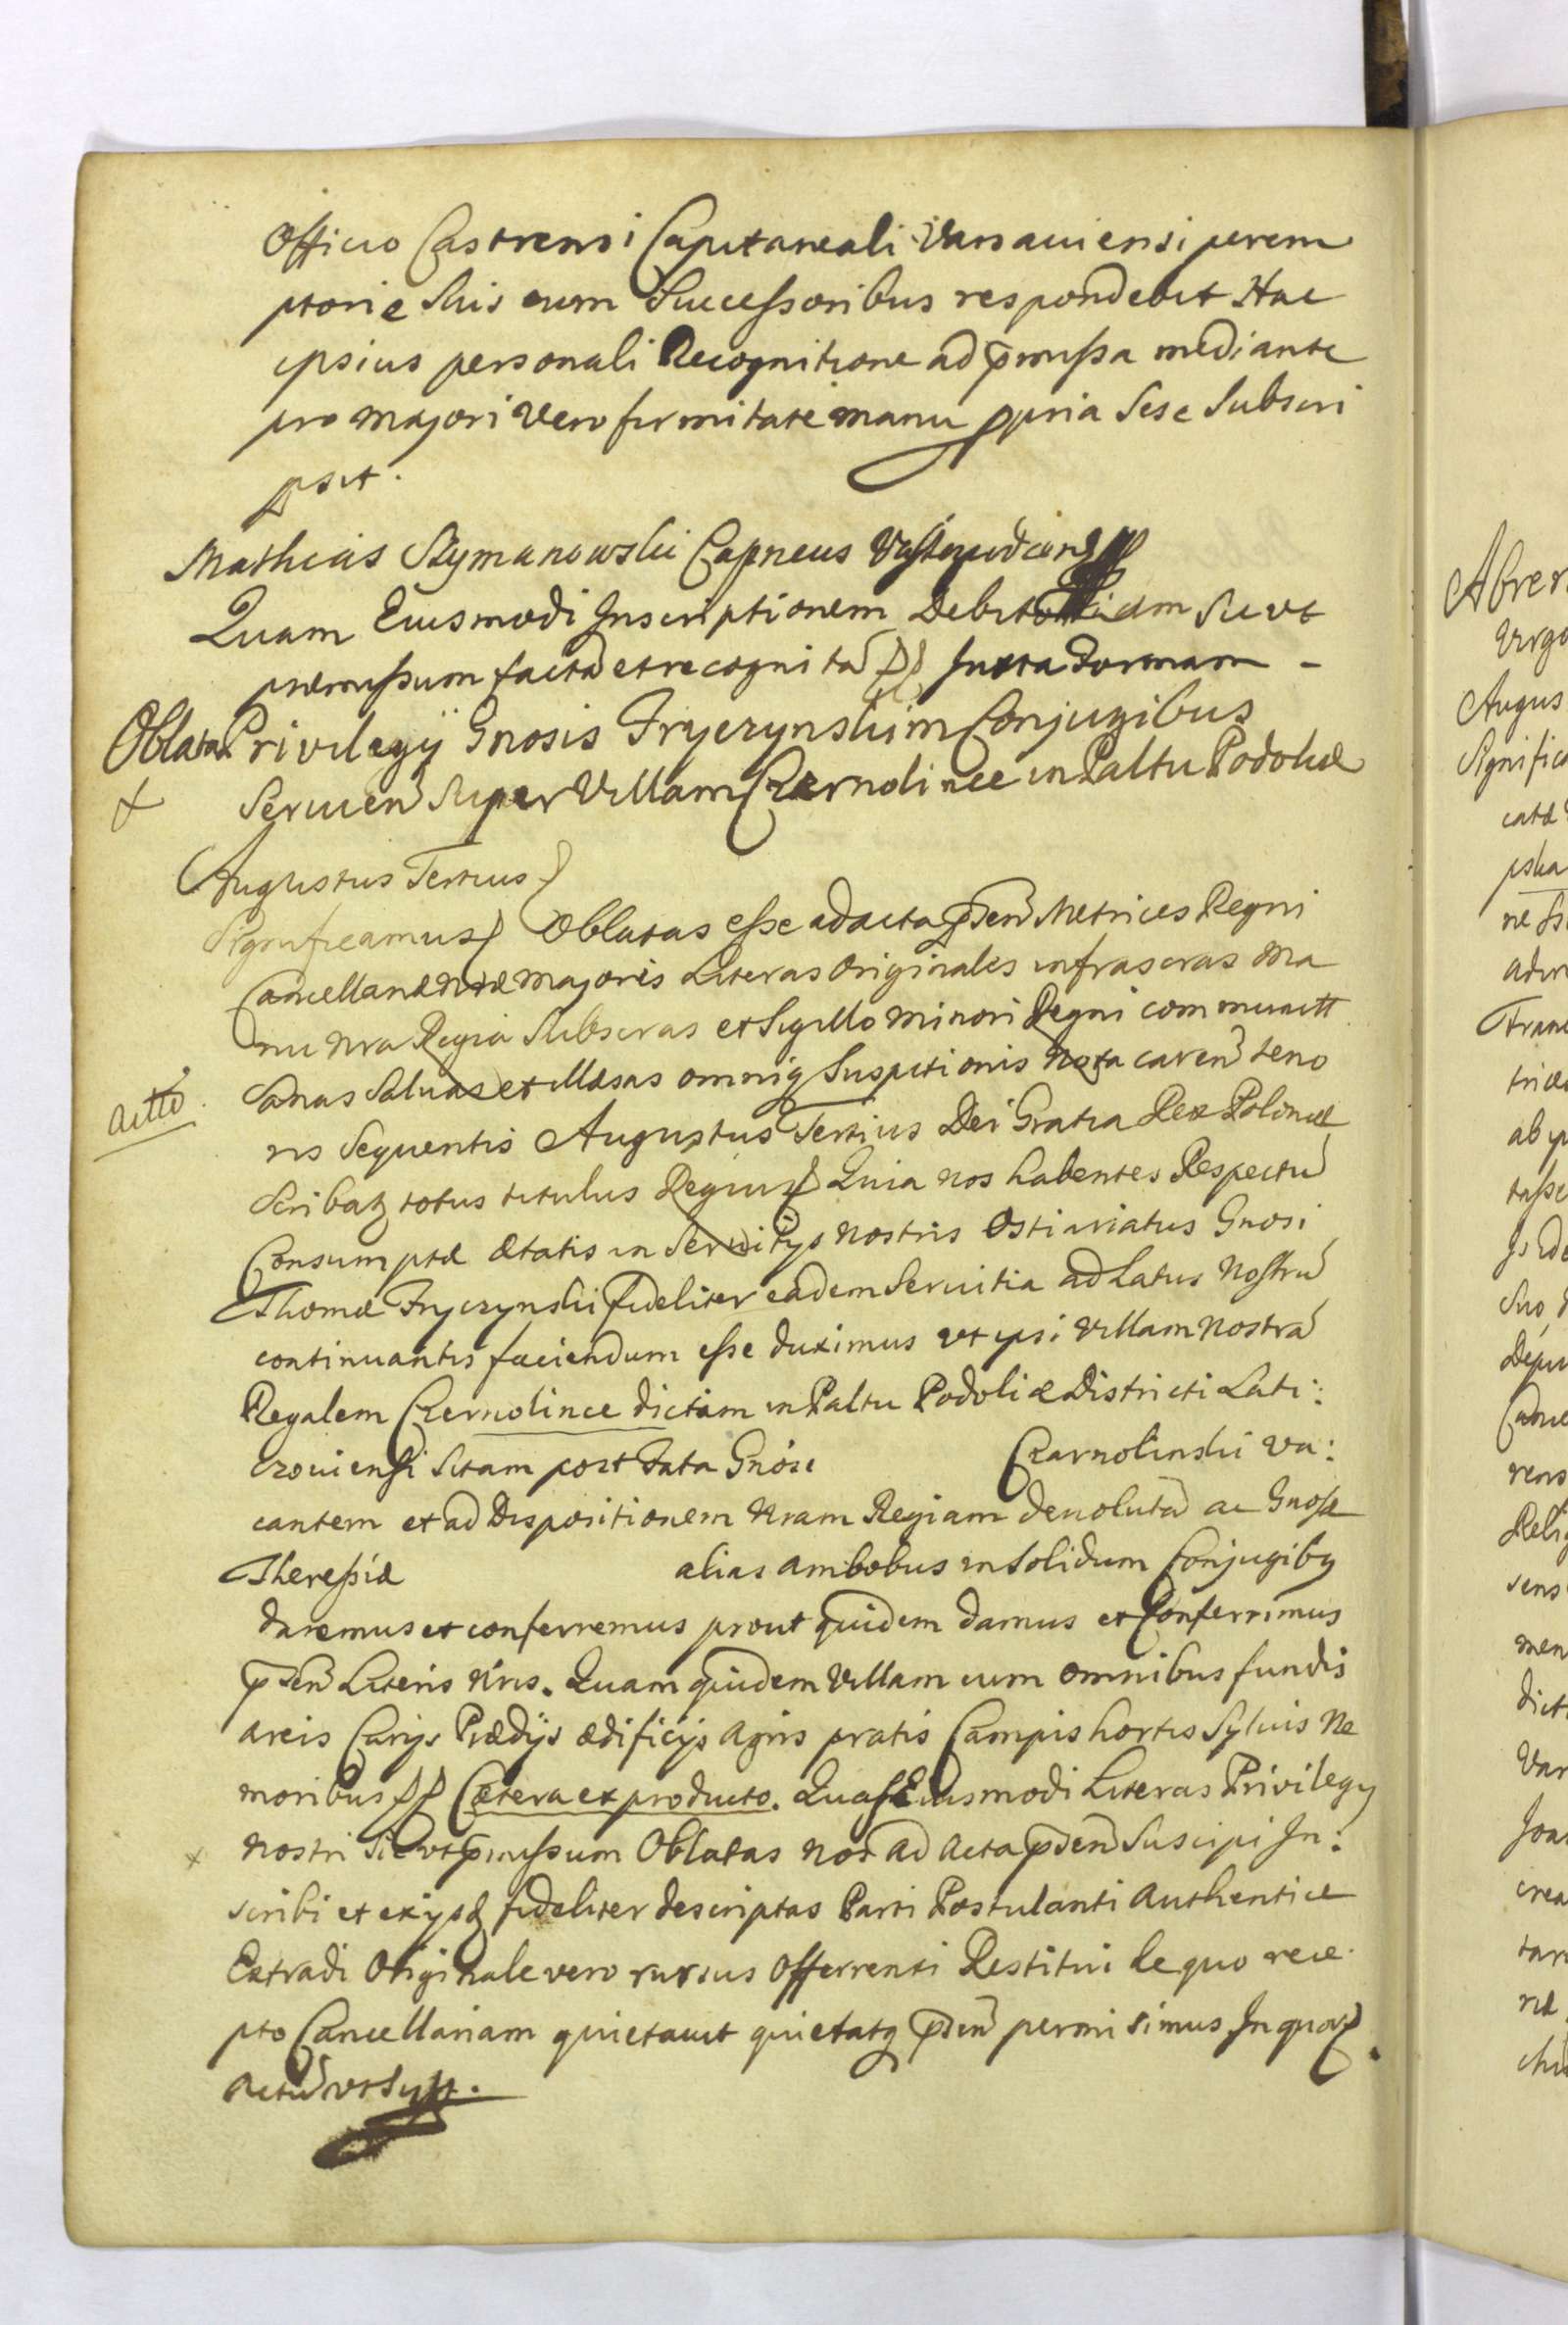 Officio Castrensi Capitaneali Varsaviensi perem
ptorie Suis cum Successoribus respondebit Hac
ipsius personali Recognitione ad p̄missa mediante
pro majori vero firmitate manu ppria Sese Subscri
psit.
Mathias Szymanowski Capneus
Quam Eiusmodi Inscriptionem Debitoriam Sic vt
præmissum factā et recognitā PP Juxta Formam -
Oblata Privilegÿ Gnosis Fryczynskim Conjugibus
Servien̄ Super Villam Czernolince in Paltu Podoliæ
Augustus Tertius
Significamus Oblatas esse ad acta p̄sen̄ Metrices Regni
Cancellariæ nræ majoris Literas Originales infrascras Ma
nu nra Regia Subscras et Sigillo minori Regni communitt
Sanas Salvas et illæsas omniq Suspitionis nota caren̄ teno
actto.
ris Sequentis Augustus Tertius Dei Gratia Rex Poloniæ
Scribatz totus titulus Regius Quia nos habentes Respectū
Consumptæ ætatis in Servitÿs nostris Ostiariatus Gnosi
Thomæ Fryczynski fideliter eadem Servitia ad Latus Nostrū
continuantis faciendum esse duximus vt ipsi Villam nostrā
Regalem Czernolince dictam in Paltu Podoliæ Districti Lati:
czoviensi Sitam post Fata Gnosi Czarnolinski va:
cantem et ad Dispositionem nram Regiam devolutā ac Gnosæ
Theressiæ alias ambobus in Solidum Conjugibq
daremus et conferremus prout quidem damus et Conferrimus
p̄sen̄ Literis nris. Quam quidem Villam cum omnibus fundis
areis Curijs Prædÿs ædificÿs agris pratis Campis hortis Sylvis Ne
moribus PP Cætera ex producto. Quas Eiusmodi Literas Privilegÿ
Nostri Sic vt p̄missum Oblatas nos ad Acta p̄sen̄ Suscipi In:
scribi et exijsq fideliter descriptas Parti Postulanti Authentice
Extradi Originale vero rursus Offerrenti Restitui de quo rece
pto Cancellariam quietavit quietatq p̄sen̄ permisimus In quor
Actū vt Supr.